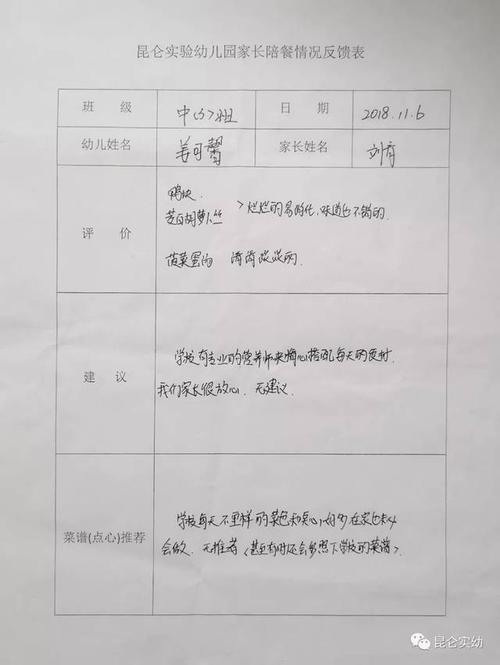 昆仑实验幼儿园家长陪餐情况反馈表
班 级 中(6)班 日 期 2018.11.6
幼儿姓名 姜可馨 家长姓名 刘育
评 价
鸭块
茭白胡萝卜丝 > 烂烂的易消化,味道也不错的.
菠菜蛋汤 清清淡淡的.
建 议
学校有专业的营养师来精心搭配每天的食材.
我们家长很放心. 无建议.
菜谱(点心)推荐
学校每天不重样的菜色和点心,好多在家也不
会做. 无推荐(甚至有时还会参照下学校的菜谱).
昆仑实幼